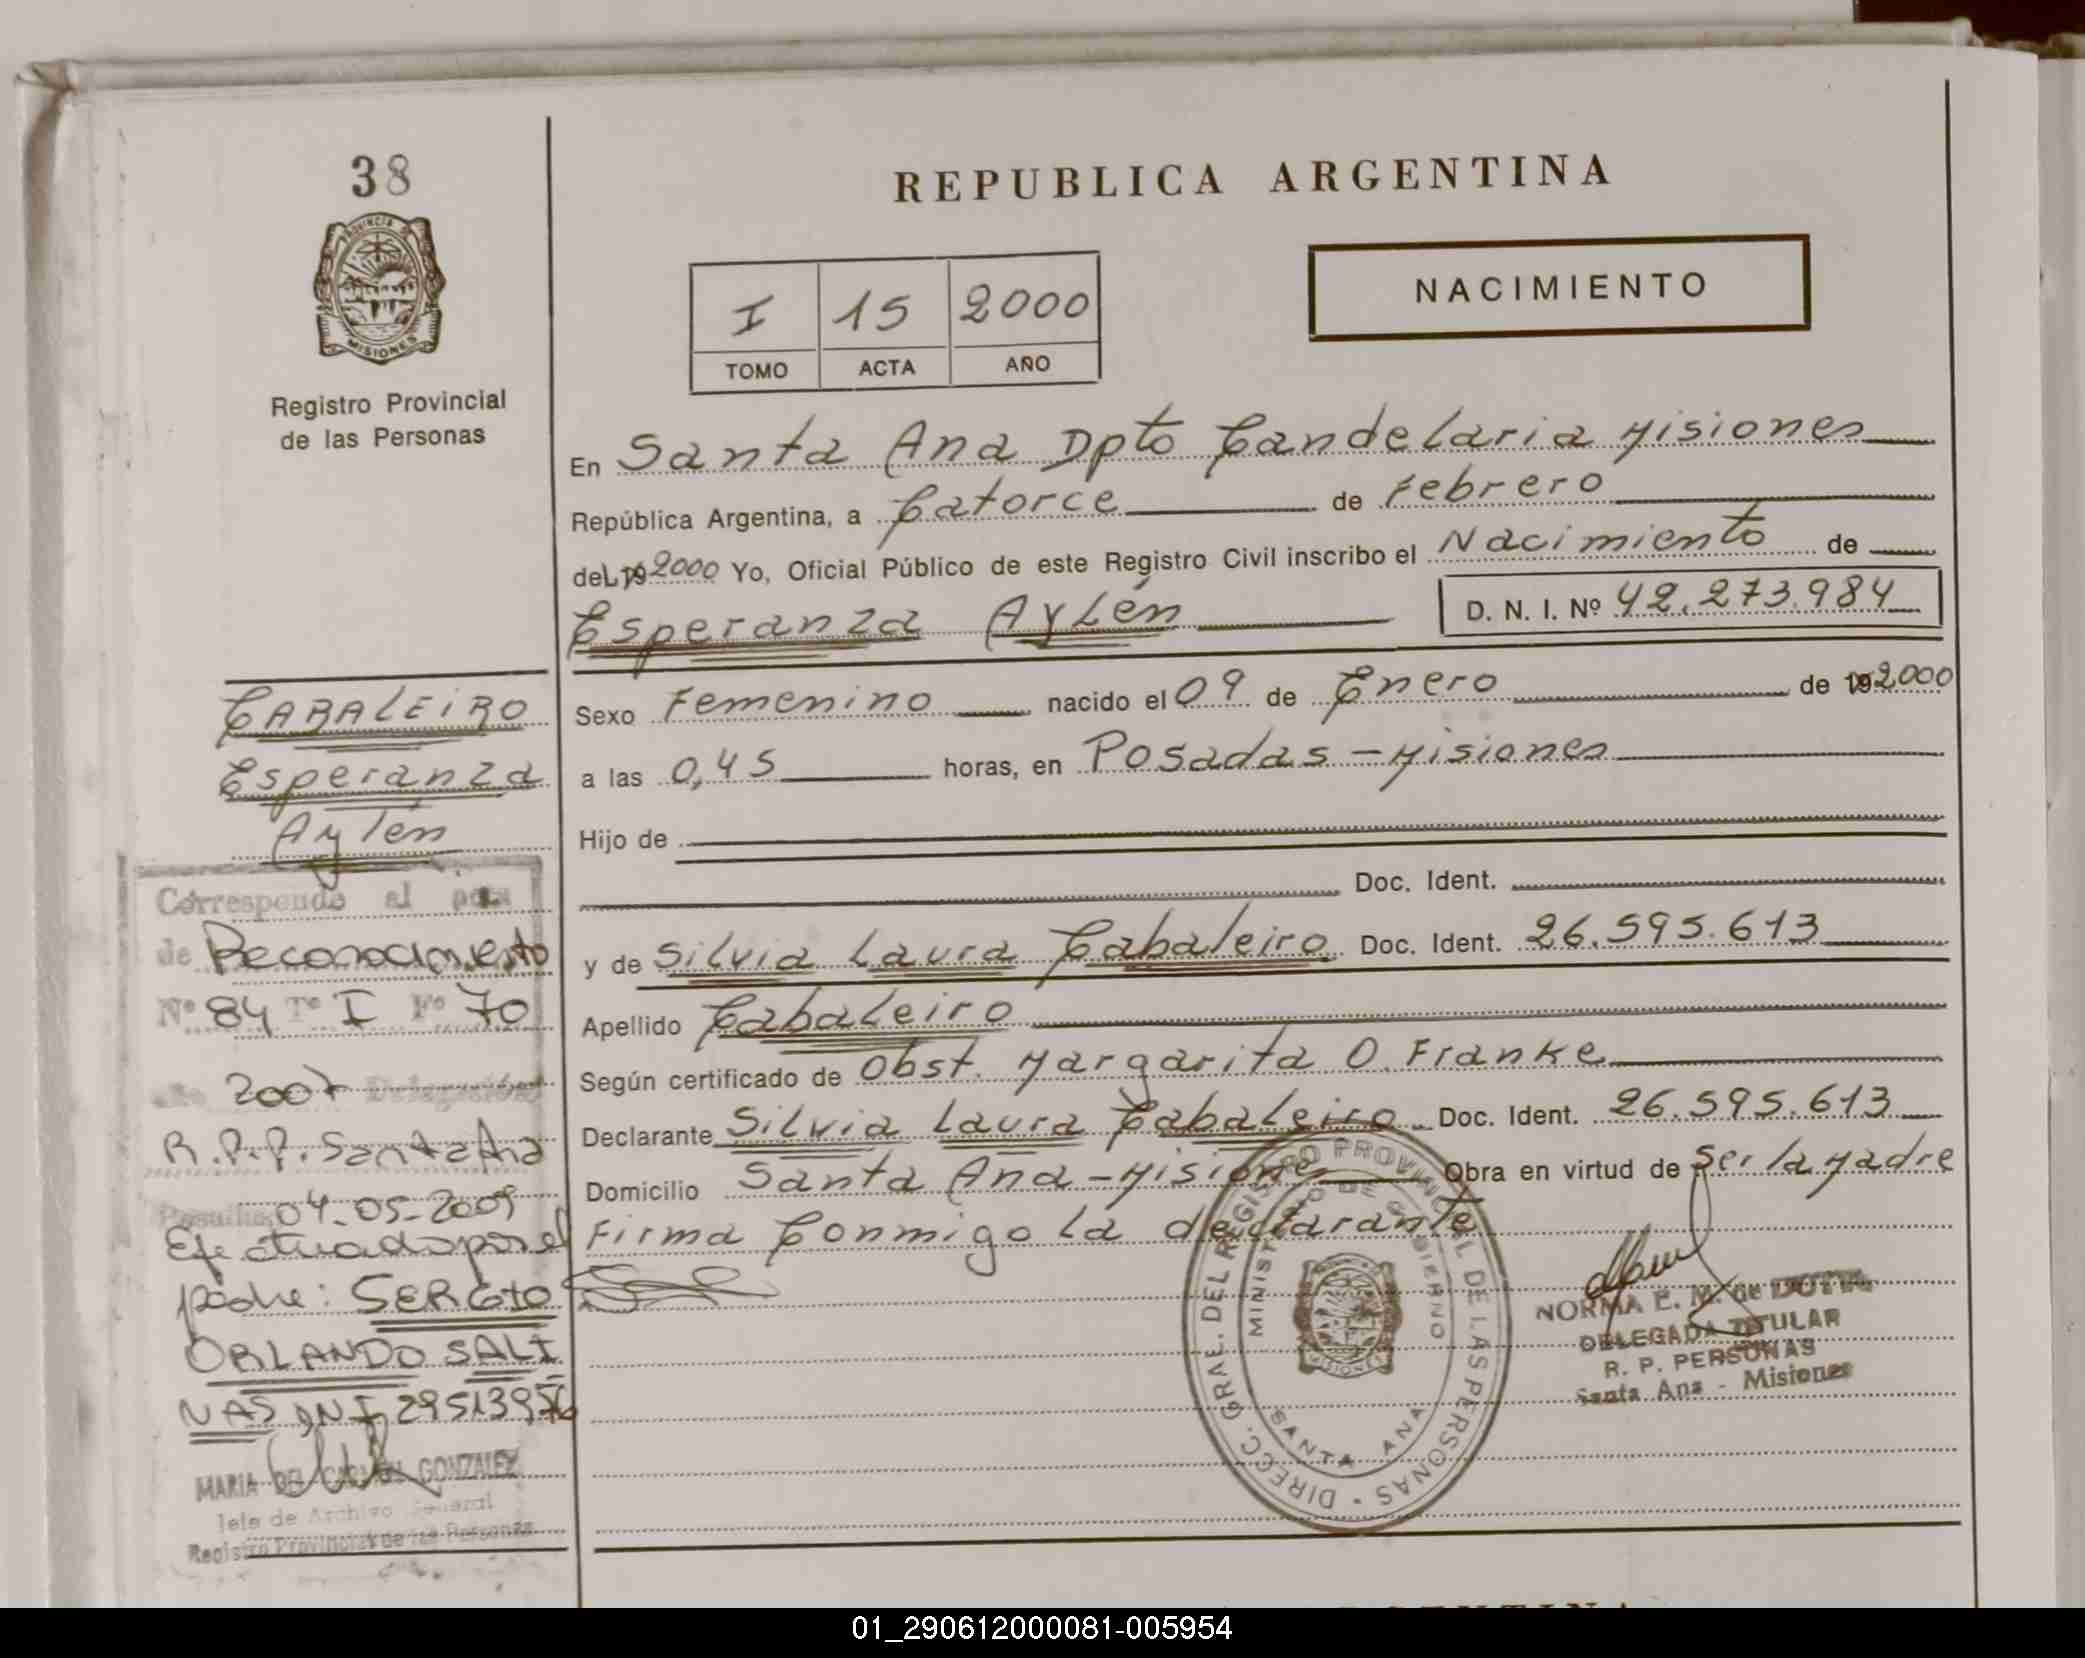 38
PROVINCIA DE
MISIONES
Registro Provincial
de las Personas
REPUBLICA ARGENTINA
NACIMIENTO
I 15 2000
TOMO ACTA AÑO
En Santa Ana Dpto Candelaria Misiones
República Argentina, a Catorce de Febrero
del 19 2000 Yo, Oficial Público de este Registro Civil inscribo el Nacimiento de
Esperanza Aylén D. N. I. Nº 42.273.984
Sexo Femenino nacido el 09 de Enero de 19 2000
a las 0,45 horas, en Posadas - Misiones
Hijo de
Doc. Ident.
y de Silvia Laura Cabaleiro Doc. Ident. 26.595.613
Apellido Cabaleiro
Según certificado de Obst. Margarita O. Franke
Declarante Silvia Laura Cabaleiro Doc. Ident. 26.595.613
Domicilio Santa Ana - Misiones Obra en virtud de Ser la Madre
Firma Conmigo la declarante
CABALEIRO
Esperanza
Aylén
Corresponde al acta
de Reconocimiento
Nº 84 Tº I Fº 70
año 2007 Delegación
R.P.P. Santa Ana
Posadas 04-05-2009
Efectuado por el
padre: SERGIO
ORLANDO SALI
NAS DNI 29513976
MARIA DEL CARMEN GONZALEZ
Jefe de Archivo General
Registro Provincial de las Personas
DIRECC. GRAL. DEL REGISTRO PROVINCIAL DE LAS PERSONAS
MINISTERIO DE GOBIERNO
MISIONES
SANTA ANA
NORMA E. M. de DUTTA
DELEGADA TITULAR
R. P. PERSONAS
Santa Ana - Misiones
01_290612000081-005954